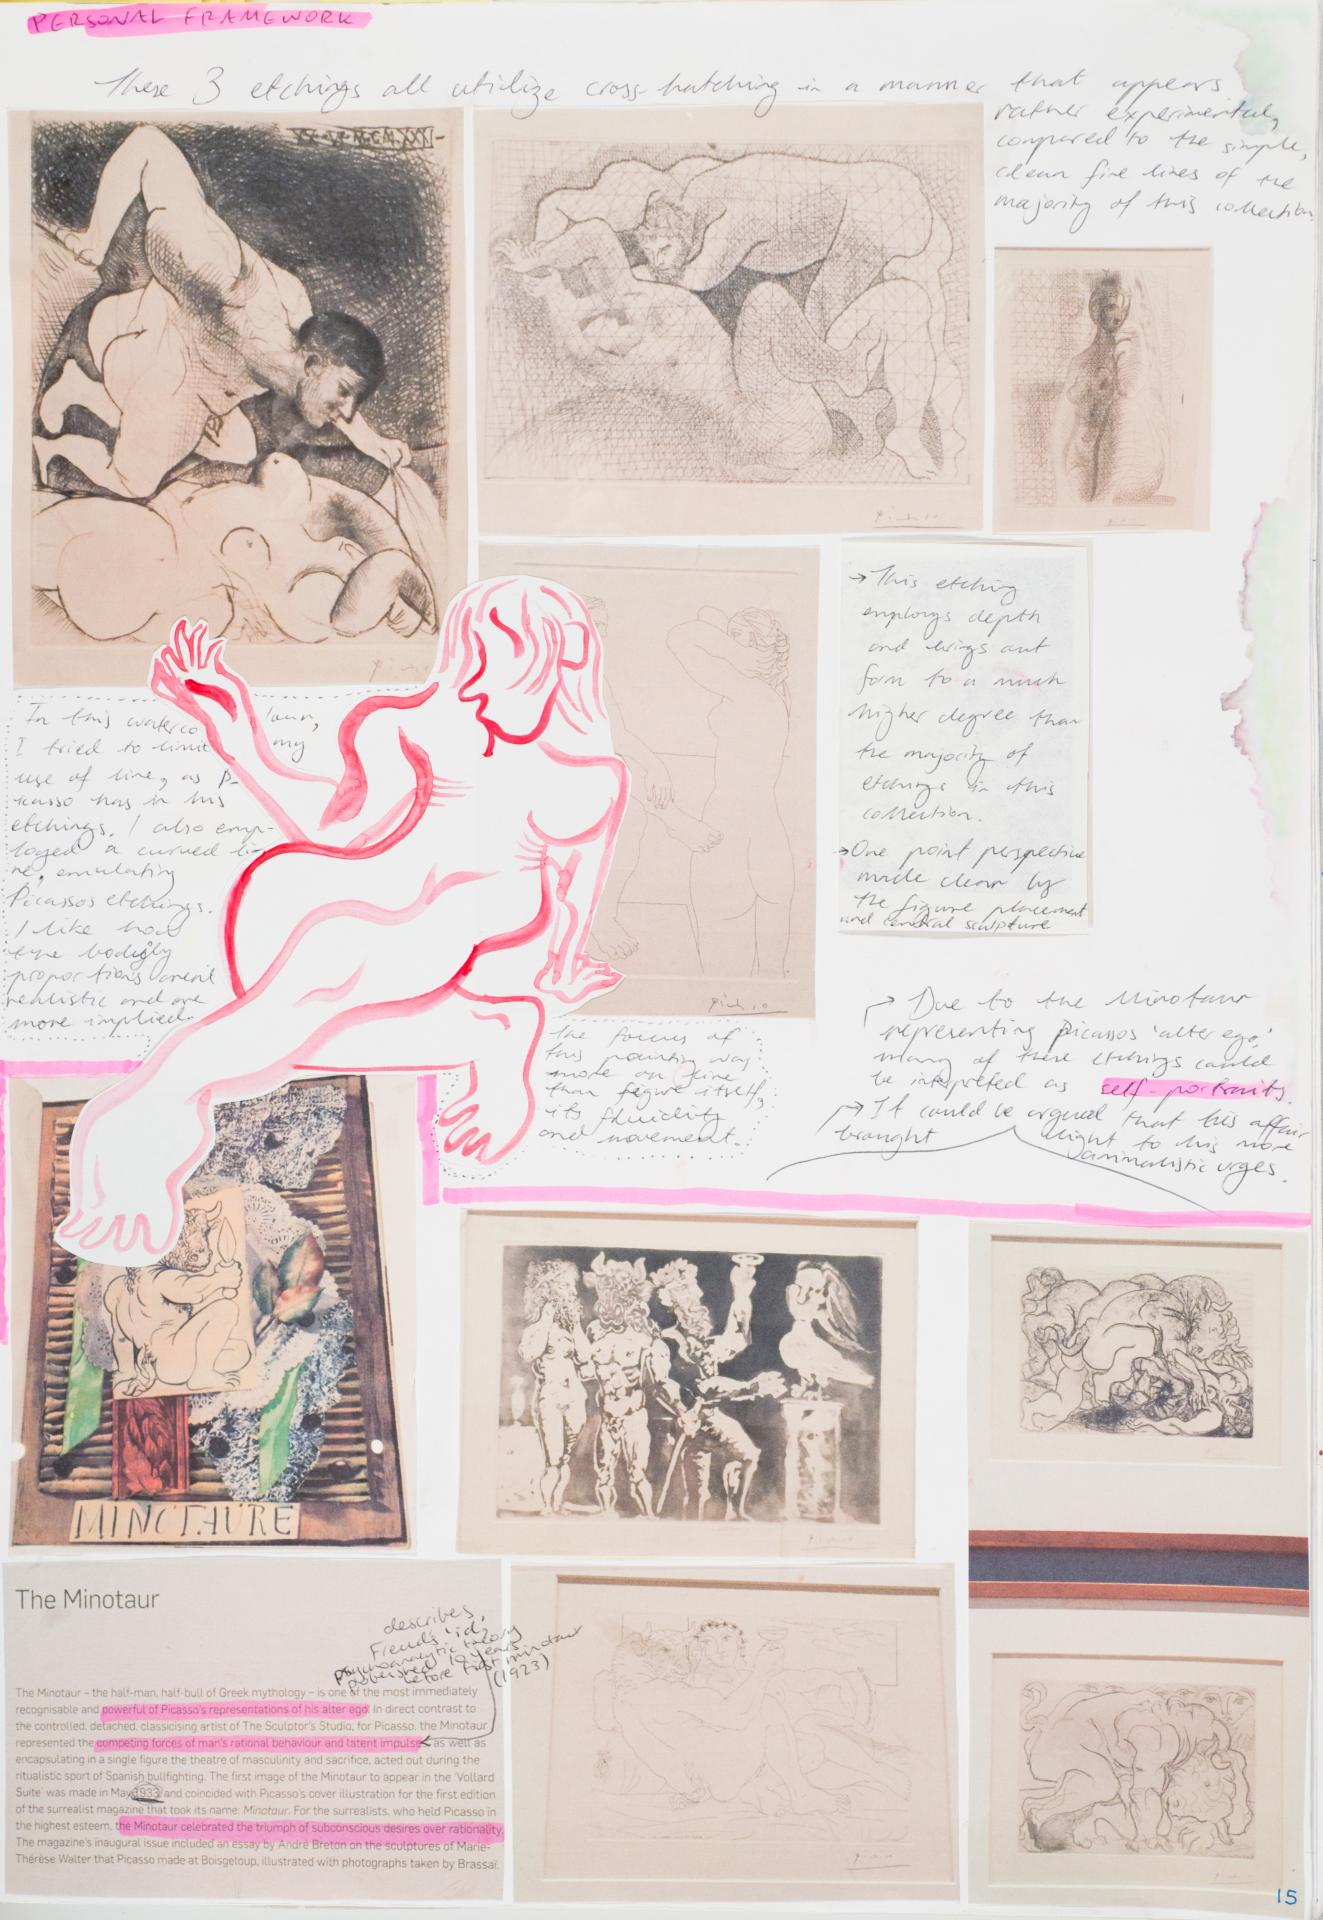 PERSONAL FRAMEWORK
These 3 etchings all utilize cross-hatching in a manner that appears
rather experimental,
compared to the simple,
clean fine lines of the
majority of this collection.
Picasso
Picasso
→ This etching
employs depth
and brings out
form to a much
higher degree than
the majority of
etchings in this
collection.
→ One point perspective
made clear by
the figure placement
and central sculpture
In this
I tried to limit my
use of line, as Pi-
casso has in his
etchings. I also emp-
loyed a curved li-
ne, emulating
Picassos etchings.
I like how
the bodily
proportions arent
realistic and are
more implied.
Picasso
the focus of
this painting was
more on line
than figure itself,
its fluidity
and movement.
→ Due to the Minotaur
representing Picassos 'alter ego',
many of these etchings could
be interpreted as self-portraits.
→ It could be argued that this affair
brought light to his more
animalistic urges.
MINOTAURE
The Minotaur
describes
Freuds 'id',
psychoanalytic theory
published 10 years
before first minotaur
(1923)
The Minotaur – the half-man, half-bull of Greek mythology – is one of the most immediately
recognisable and powerful of Picasso's representations of his alter ego. In direct contrast to
the controlled, detached, classicising artist of The Sculptor's Studio, for Picasso, the Minotaur
represented the competing forces of man's rational behaviour and latent impulse as well as
encapsulating in a single figure the theatre of masculinity and sacrifice, acted out during the
ritualistic sport of Spanish bullfighting. The first image of the Minotaur to appear in the 'Vollard
Suite' was made in May 1933 and coincided with Picasso's cover illustration for the first edition
of the surrealist magazine that took its name: Minotaur. For the surrealists, who held Picasso in
the highest esteem, the Minotaur celebrated the triumph of subconscious desires over rationality.
The magazine's inaugural issue included an essay by André Breton on the sculptures of Marie-
Thérèse Walter that Picasso made at Boisgeloup, illustrated with photographs taken by Brassaï.
Picasso
15